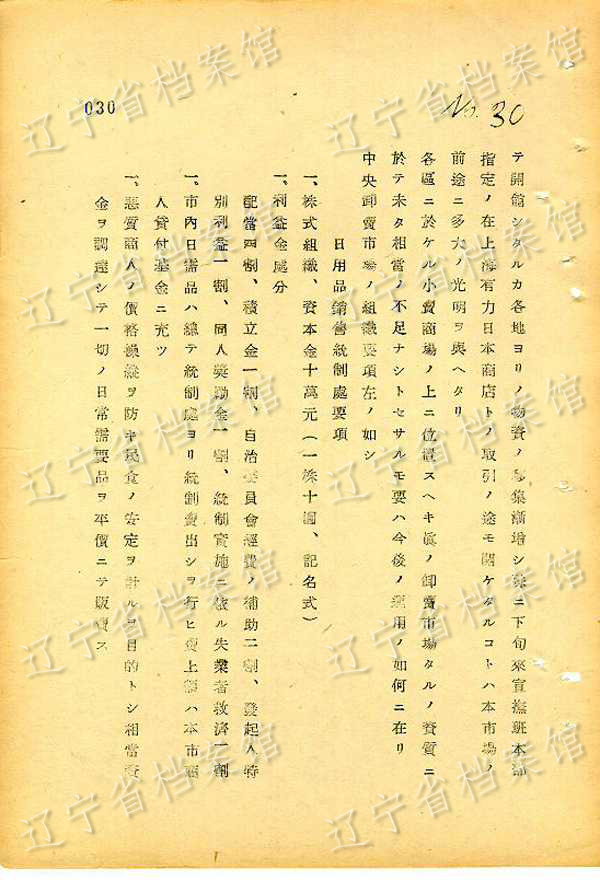 030
No. 30
テ開館シタルカ各地ヨリノ物資ノ集漸増シ殊ニ下旬來宣撫班本部
指定ノ在上海有力日本商店トノ取引ノ途モ開ケタルコトハ本市場ノ
前途ニ多大ノ光明ヲ與ヘタリ
各區ニ於ケル小賣商場ノ上ニ位置スヘキ眞ノ卸賣市場タルノ資質ニ
於テ未タ相當ノ不足ナシトセサルモ要ハ今後ノ運用ノ如何ニ在リ
中央卸賣市場ノ組織要項左ノ如シ
日用品銷售統制處要項
一、株式組織、資本金十萬元(一株十圓、記名式)
一、利益金處分
配當四割、積立金一割、自治委員會經費ノ補助二割、發起人特
別利益一割、同人獎勵金一割、統制實施ニ依ル失業者救濟一割
一、市內日需品ハ總テ統制處ヨリ統制賣出シヲ行ヒ賣上額ハ本市商
人貸付基金ニ充ツ
一、惡質商人ノ價格操縱ヲ防キ民食ノ安定ヲ計ルヲ目的トシ相當資
金ヲ調達シテ一切ノ日常需要品ヲ平價ニテ販賣ス
辽宁省档案馆
辽宁省档案馆
辽宁省档案馆
辽宁省档案馆
辽宁省档案馆
辽宁省档案馆